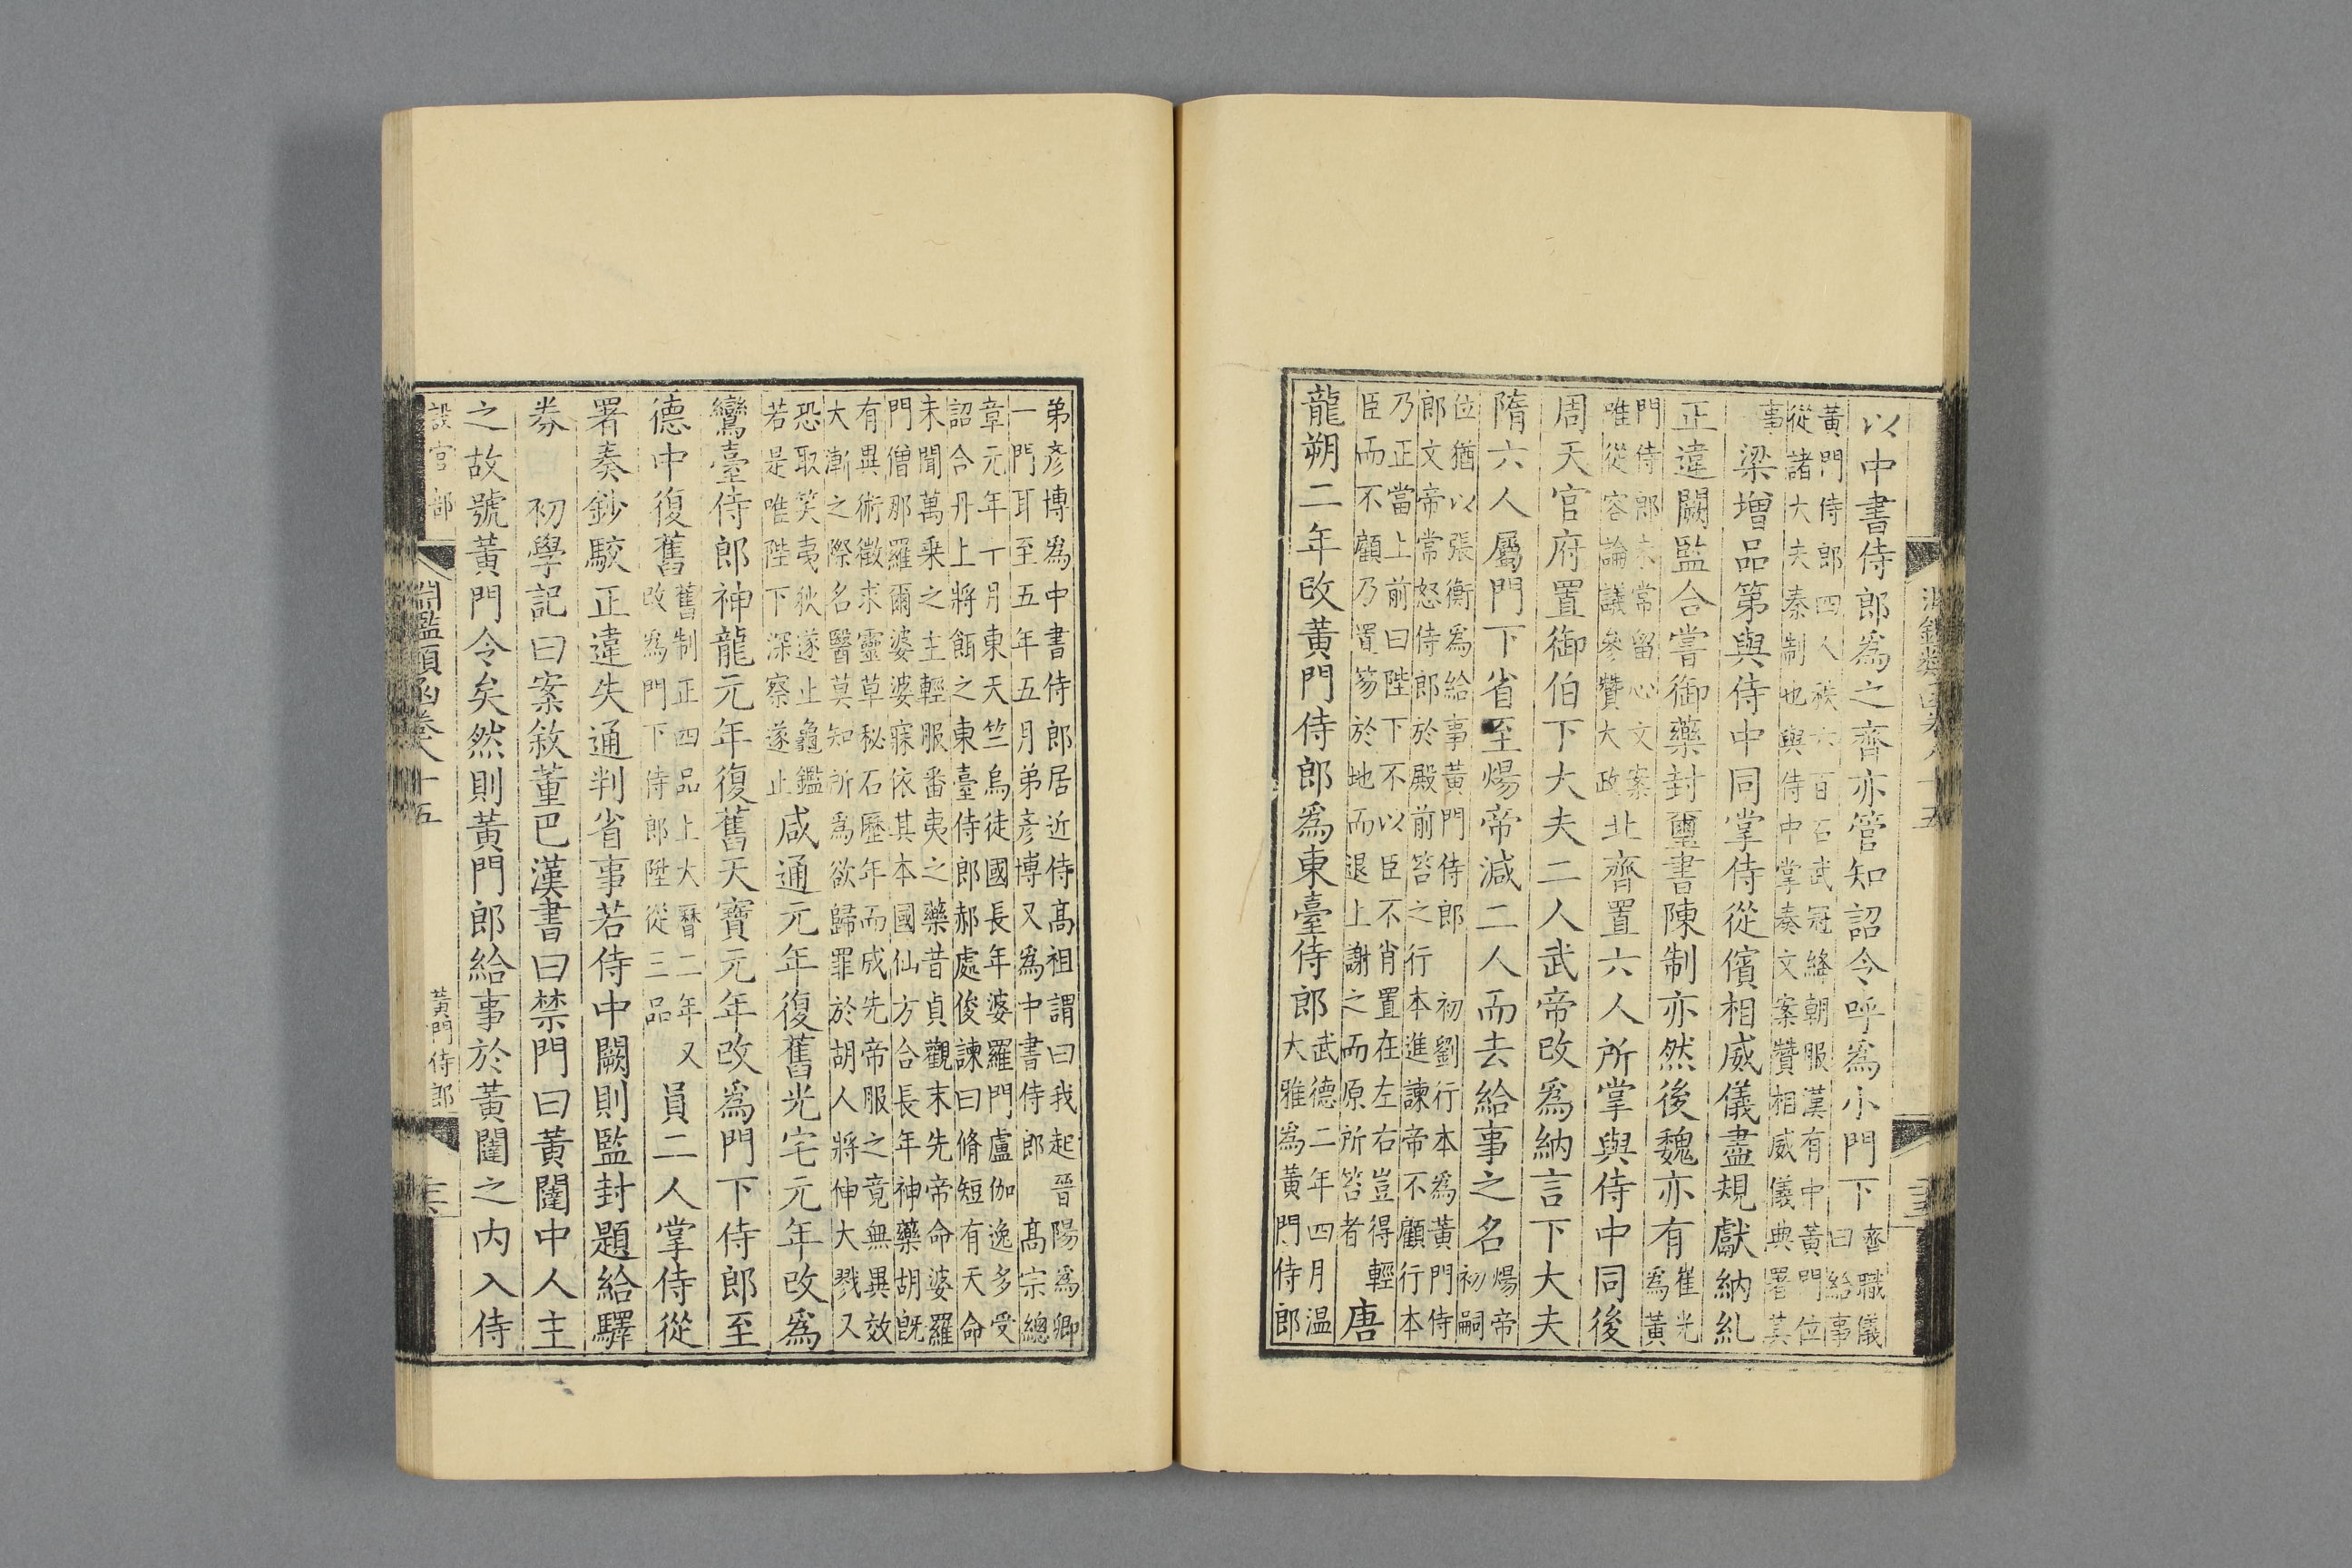 以中書侍郎爲之齊亦管知詔令呼爲小門下
齊職儀
曰給事
黃門侍郎四人秩六百石武冠絳朝服漢有中黃門位
從諸大夫秦制也與侍中掌奏文案贊相威儀典署其
事
梁增品第與侍中同掌侍從儐相威儀盡規獻納糺
正違闕監合嘗御藥封璽書陳制亦然後魏亦有
崔光
爲黃
門侍郎未常留心文案
唯從容論議參贊大政
北齊置六人所掌與侍中同後
周天官府置御伯下大夫二人武帝改爲納言下大夫
隋六人屬門下省至煬帝減二人而去給事之名
煬帝
初嗣
位猶以張衡爲給事黃門侍郎 初劉行本爲黃門侍
郎文帝常怒侍郎於殿前笞之行本進諫帝不顧行本
乃正當上前曰陛下不以臣不肖置在左右豈得輕
臣而不顧乃置笏於地而退上謝之而原所笞者
唐
龍朔二年改黃門侍郎爲東臺侍郎
武德二年四月温
大雅爲黃門侍郎
弟彥博爲中書侍郎居近侍高祖謂曰我起晉陽爲卿
一門耳至五年五月弟彥博又爲中書侍郎 高宗總
章元年丁月東天竺烏徒國長年婆羅門盧伽逸多受
詔合丹上將餌之東臺侍郎郝處俊諫曰脩短有天命
未聞萬乗之主輕服番夷之藥昔貞觀末先帝命婆羅
門僧那羅爾婆婆寐依其本國仙方合長年神藥胡旣
有異術徵求靈草秘石歷年而成先帝服之竟無異效
大漸之際名醫莫知所爲欲歸罪於胡人將伸大戮又
恐取笑夷狄遂止龜鑑
若是唯陛下深察遂止
咸通元年復舊光宅元年改爲
鸞臺侍郎神龍元年復舊天寶元年改爲門下侍郎至
德中復舊
舊制正四品上大曆二年又
改爲門下侍郎陞從三品
員二人掌侍從
署奏鈔駮正違失通判省事若侍中闕則監封題給驛
券 初學記曰案敘董巴漢書曰禁門曰黃闥中人主
之故號黃門令矣然則黃門郎給事於黃闥之内入侍
設官部
淵鑑類函卷八十五
黃門侍郎